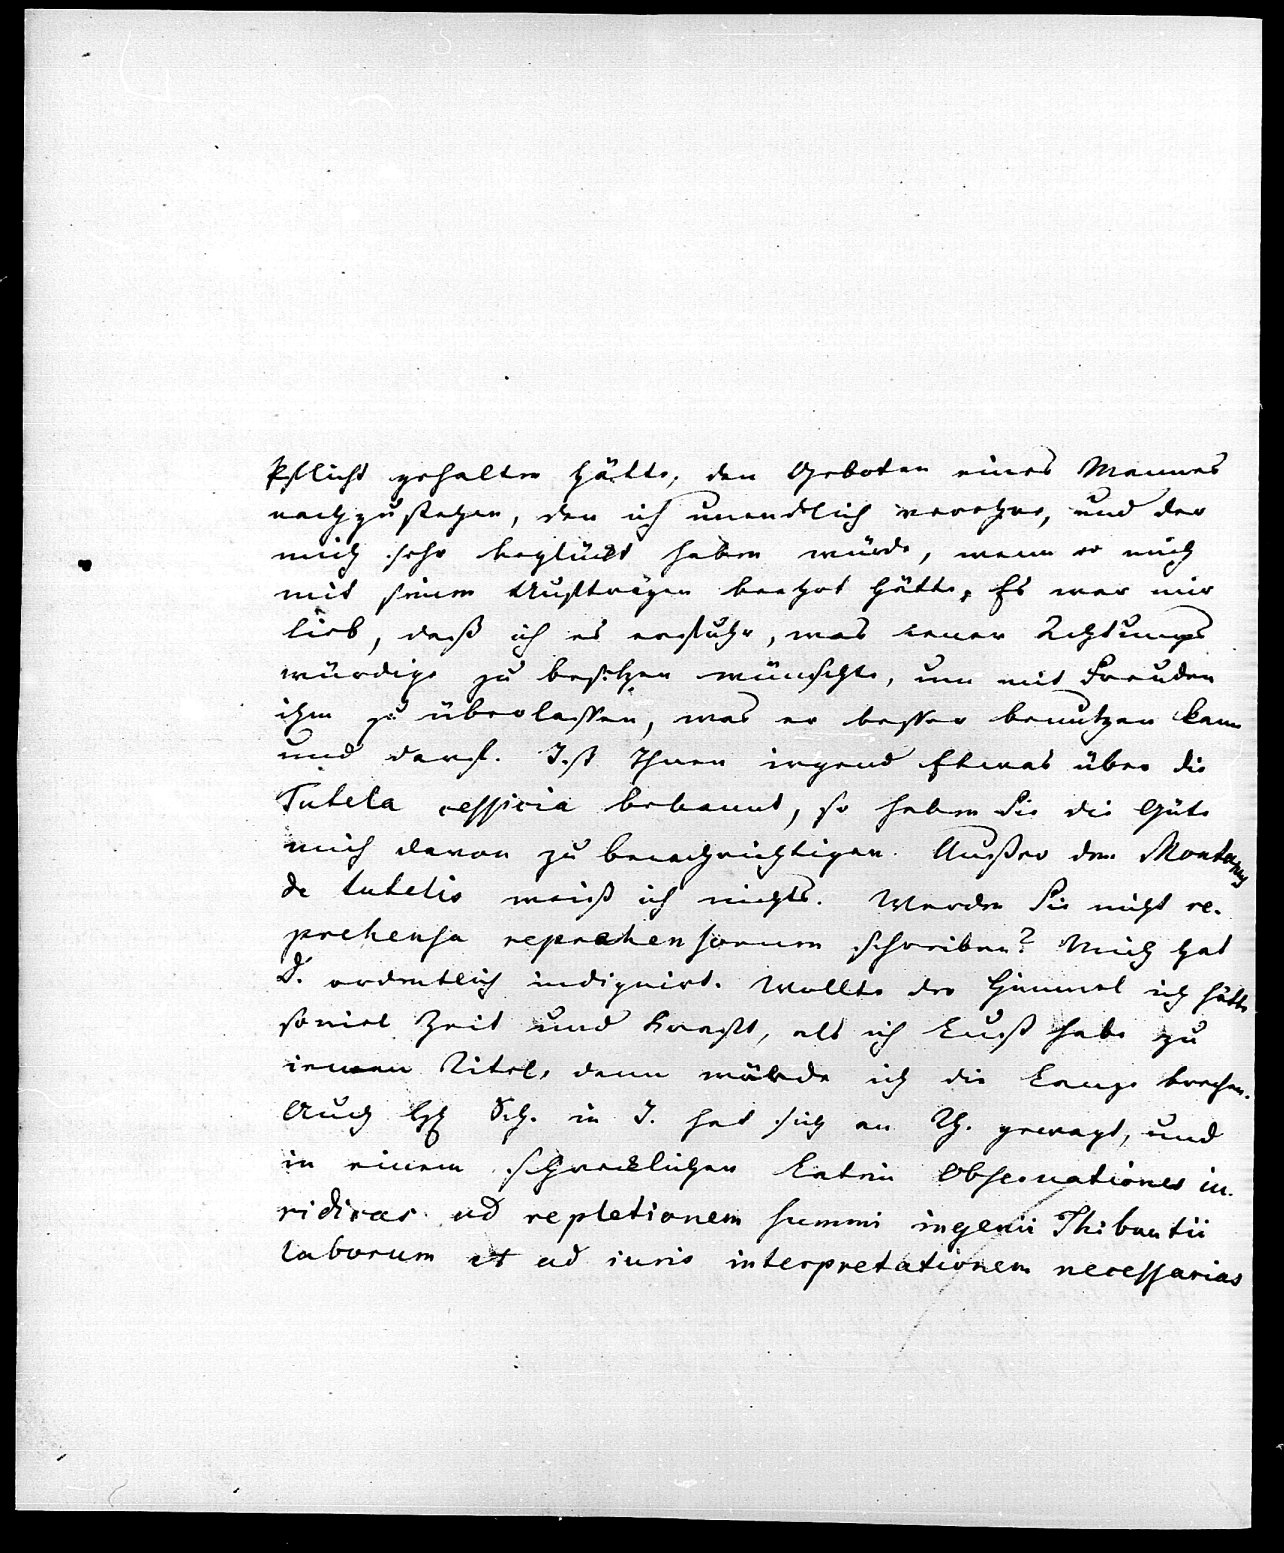 Pflicht gehalten hätte, den Geboten eines Mannes
nachzustehen, den ich unendlich verehre, und der
mich sehr beglückt haben würde, wenn er mich
mit seinen Aufträgen beehrt hätte. Es war mir
lieb, daß ich es erfuhr, was jener Achtungs
würdige zu besitzen wünschte, um mit Freuden
ihm zu überlassen, was er besser benutzen kann
und darf. Ist Ihnen irgend Etwas über die
Tutela cessicia bekannt, so haben Sie die Güte
mich davon zu benachrichtigen. Außer dem Montanus
de tutelis weiß ich nichts. Werden Sie nicht re-
prehensa reprehensorum schreiben? Mich hat
D. ordentlich indignirt. Wollte der Himmel ich hätte
soviel Zeit und Kraft, als ich Lust habe zu
jenem Titel, dann würde ich die Lanze brechen.
Auch Sch. in J. hat sich an Th. gewagt, und
in einem schrecklichen Latein Observationes iu-
ridicas ad repletionem summi ingenii Thibautii
laborum et ad iuris interpretationem necessarias